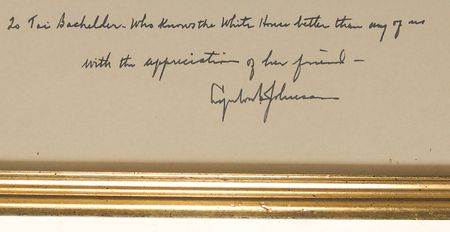 To Toi Bachelder - Who Knows the White House better than any of us
with the appreciation of her friend -
Lyndon B. Johnson